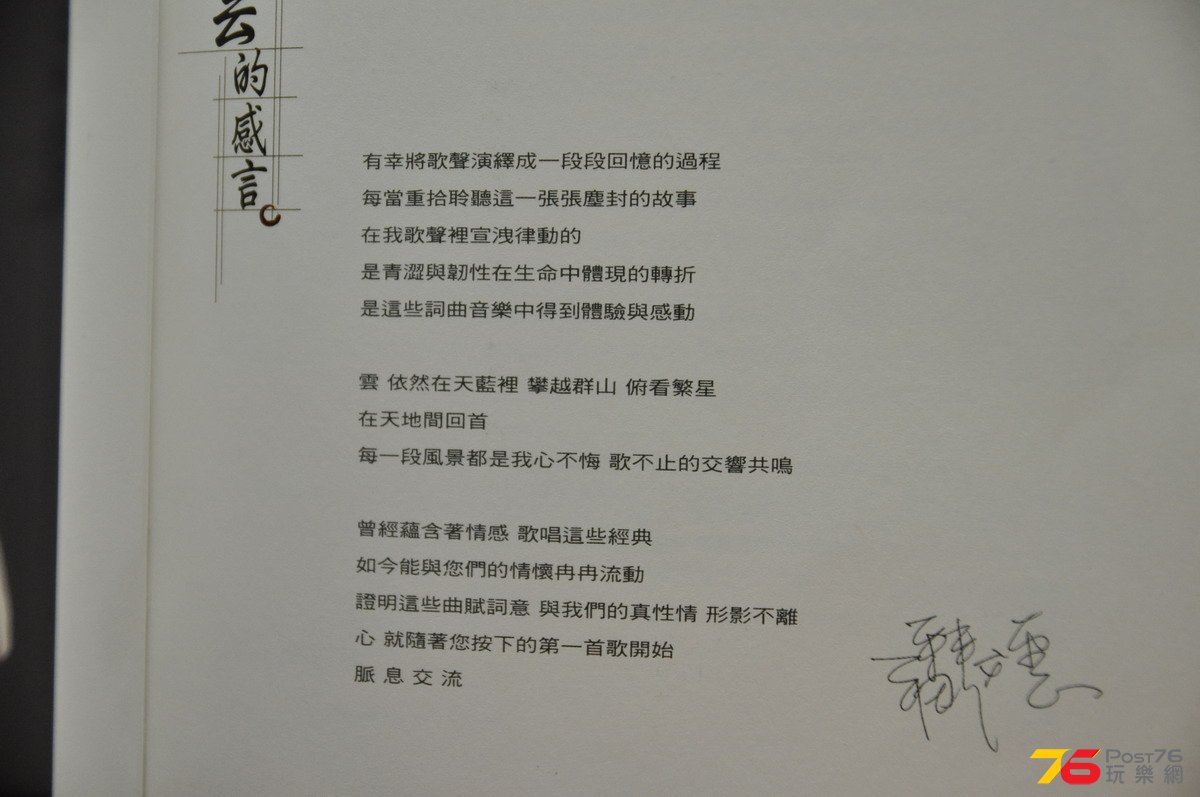 云的感言
有幸將歌聲演繹成一段段回憶的過程
每當重拾聆聽這一張張塵封的故事
在我歌聲裡宣洩律動的
是青澀與韌性在生命中體現的轉折
是這些詞曲音樂中得到體驗與感動
雲 依然在天藍裡 攀越群山 俯看繁星
在天地間回首
每一段風景都是我心不悔 歌不止的交響共鳴
曾經蘊含著情感 歌唱這些經典
如今能與您們的情懷冉冉流動
證明這些曲賦詞意 與我們的真性情 形影不離
心 就隨著您按下的第一首歌開始
脈息交流
76 POST76
玩樂網